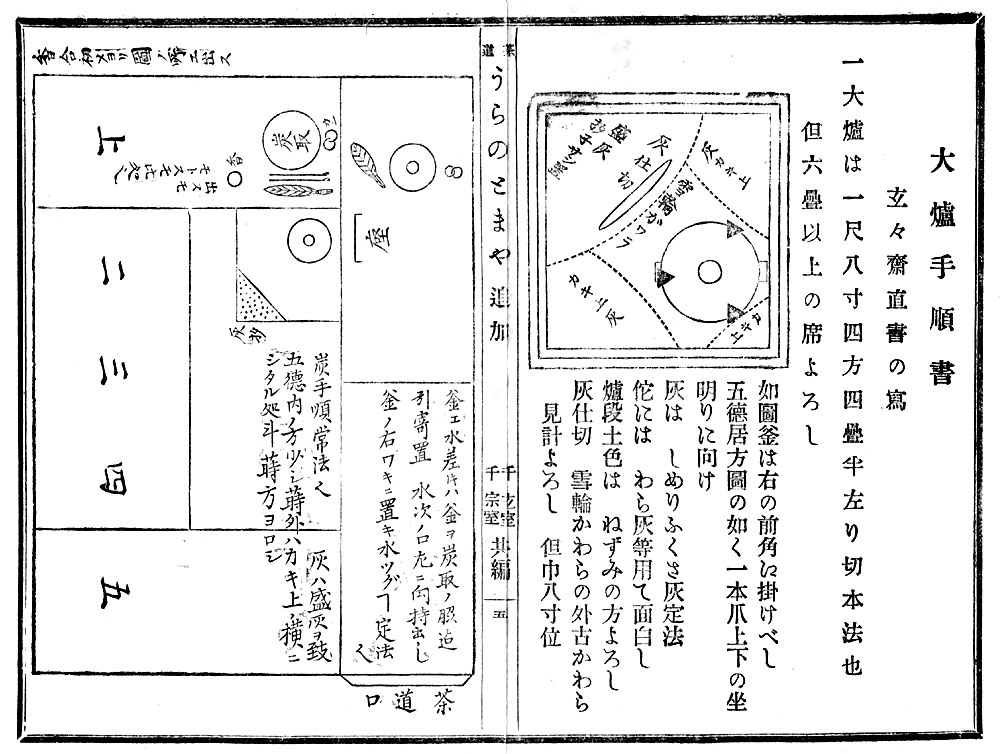 大爐手順書
玄々齋直書の寫
一大爐は一尺八寸四方四疊半左り切本法也
但六疊以上の席よろし
灰カキ上
灰仕切
雪輪がワラ
盛灰
カキ上灰
カキ上
如圖釜は右の前角に掛けべし
五德居方圖の如く一本爪上下の坐
明りに向け
灰は しめりふくさ灰定法
佗には わら灰等用て面白し
爐段土色は ねずみの方よろし
灰仕切 雪輪かわらの外古かわら
見計よろし 但巾八寸位
茶道
うらのとまや追加
千玄室
千宗室
共編
五
座
釜エ水差キハ釜ヲ炭取ノ照迄
引寄置 水次ノ口左ニ向持出し
釜ノ右ワキニ置キ水ツグヿ定法
茶道口
炭取
香
上
二
三
四
五
炭手順常法
灰ハ盛灰ヲ致